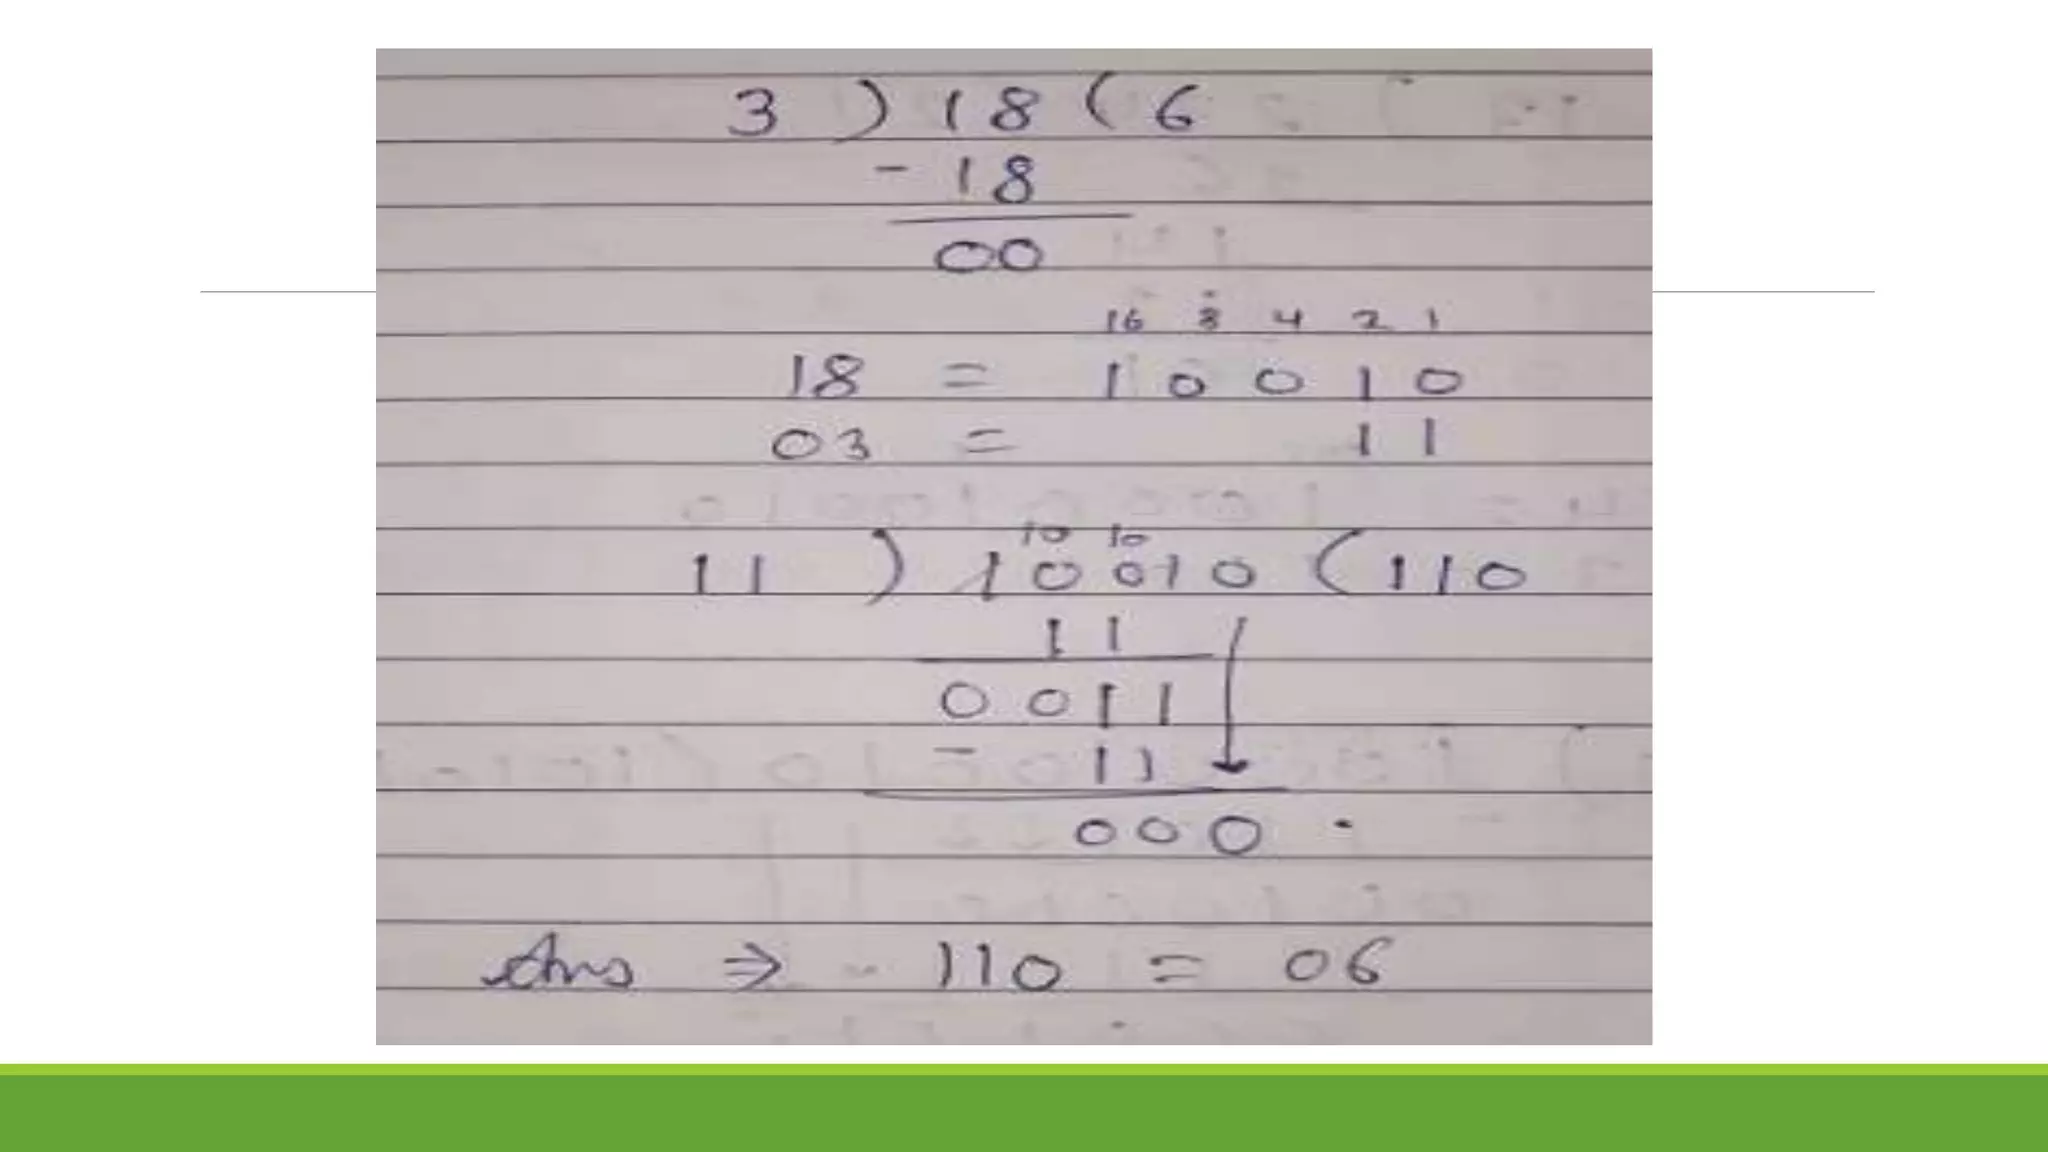 3 ) 18 ( 6
- 18
00
16 8 4 2 1
18 = 1 0 0 1 0
03 = 1 1
10 10
11 ) 10010 ( 110
1 1
0 0 1 1
- 1 1
0 0 0 .
Ans ⇒ 110 = 06